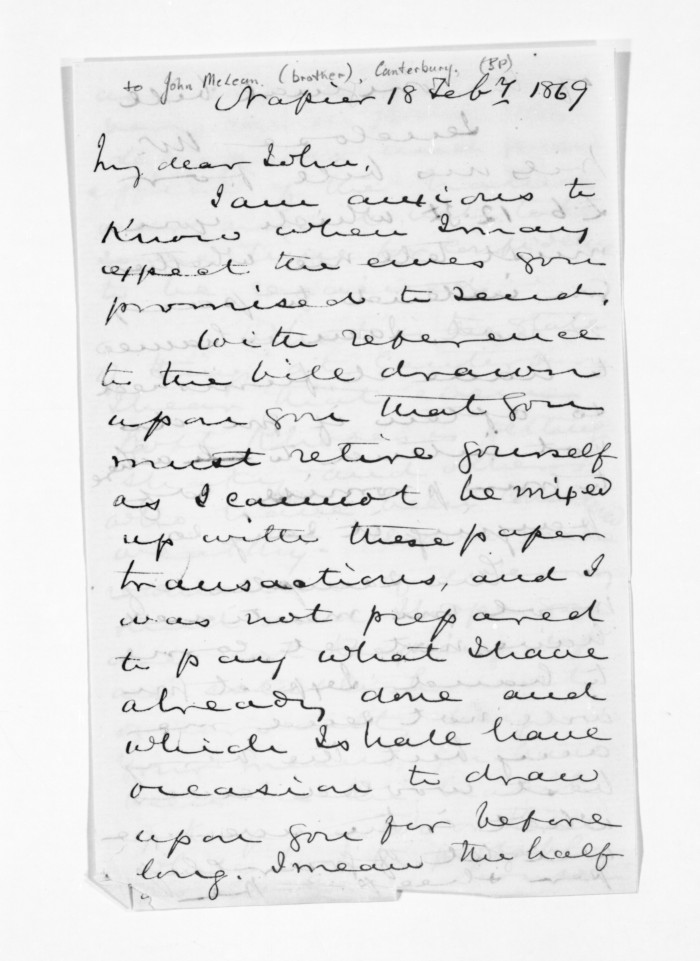 to John McLean. (brother), Canterbury. (BP)
Napier 18 Feby 1869
My dear John,
I am anxious to
Know when I may
expect the ewes you
promised to send.
With reference
to the bill drawn
upon you that you
must retire yourself
as I cannot be mixed
up with these paper
transactions, and I
was not prepared
to pay what I have
already done and
which I shall have
occasion to draw
upon you for before
long. I mean the half